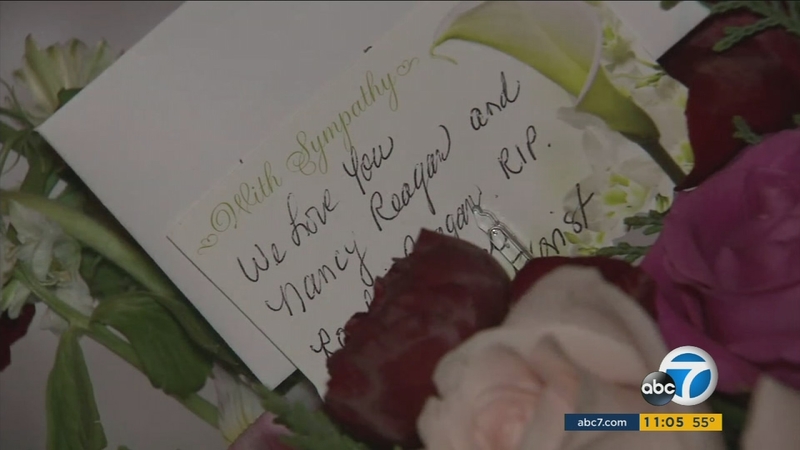 With Sympathy
We Love You
Nancy Reagan and
Reagan. RIP.
abc 7
abc7.com 11:05 55°